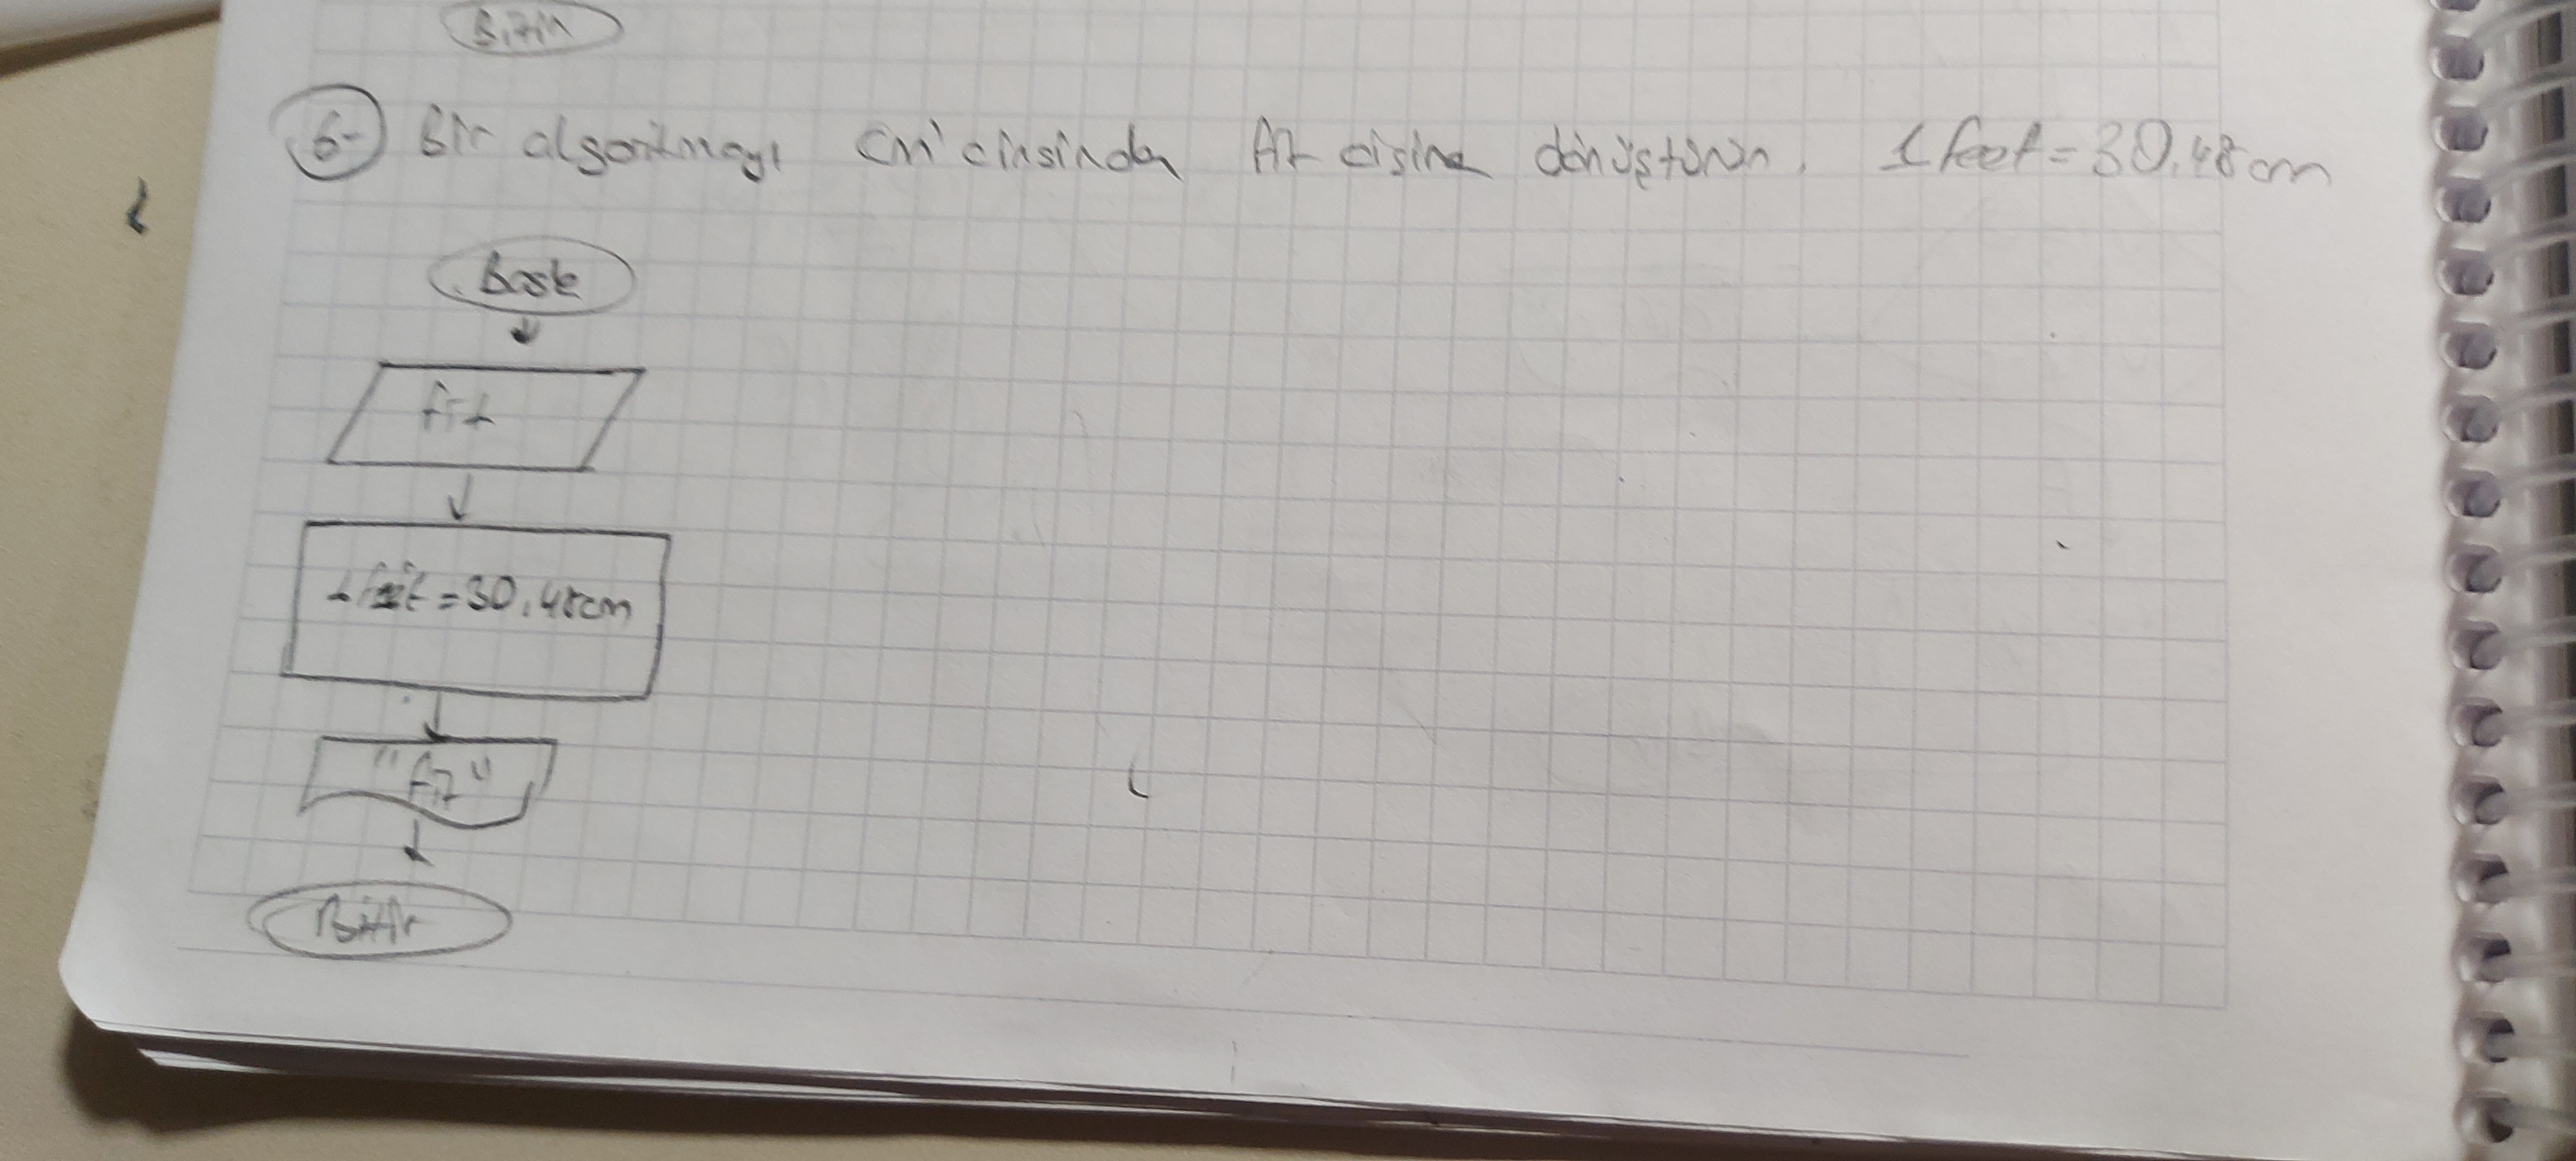 Bitir
6- Bir algoritmayı cm' cinsinden fit cisine dönüştürün. 1 feet = 30.48 cm
Başla
fit
1 feet = 30.48cm
"fit"
Bitir